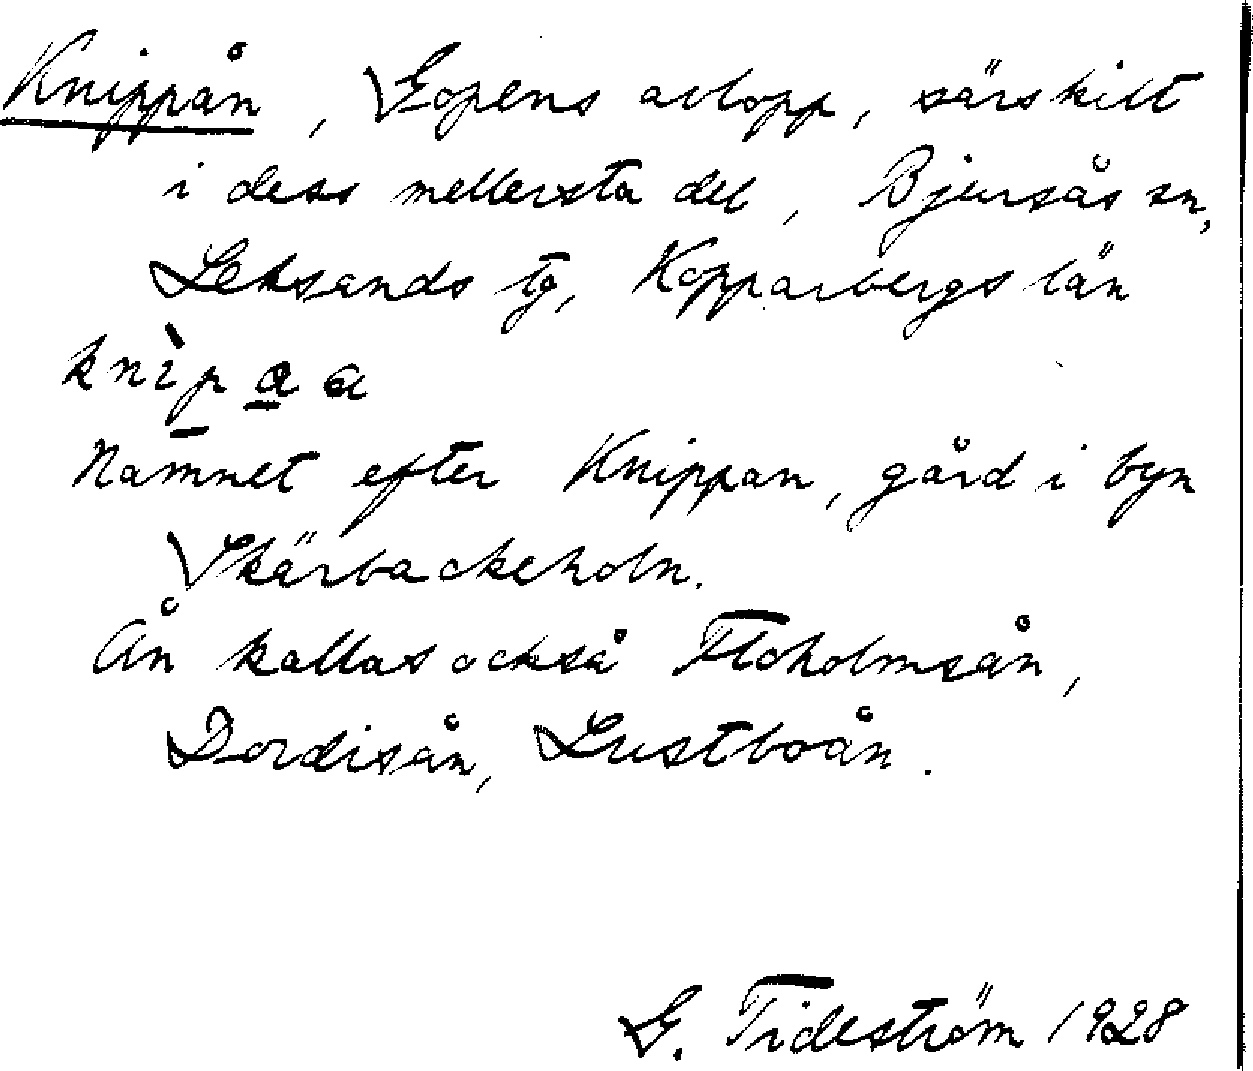 Knippån, Gopens avlopp, särskilt
i dess mellersta del, Bjursås sn,
Leksands tg, Kopparbergs län
knìpa̲a
Namnet efter Knippan, gård i byn
Skärbackeholn.
Ån kallas också Floholmsån,
Dordisån, Lustboån.
G. Tideström 1928